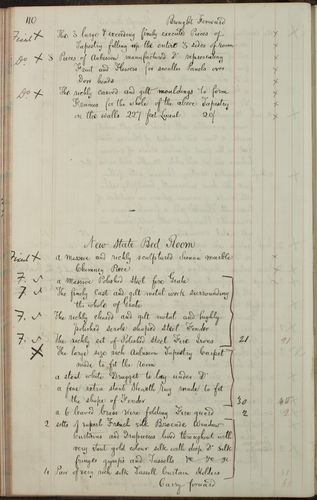 110 Brought Forward
Fixed x The 3 large & exceeding finely executed Pieces of
Tapestry filling up the entire 3 sides of room x
Do x 3 Pieces of Aubusson manufactured Do representing
Fruit and Flowers for smaller Panels over
Door heads x
Do x The richly carved and gilt mouldings to form
Frames for the whole of the above Tapestry
on the walls 227 feet Lineal 20/ x
New State Bed Room
Fixed x a massive and richly sculptured marble x
Chimney Piece x
F. a massive Polished Steel fire Grate
F. The finely cast and gilt metal work surrounding
the whole of Grate
F. The richly chased and gilt metal and highly
polished scrole shaped steel Fender
F. The richly set of Polished Steel Fire Irons 21
x The large size rich Aubusson Tapestry Carpet
made to fit the room
a stout white Drugget to lay under Do
a fine extra stout Hearth rug made to fit
the shape of Fender 30
a 6 leaved brass wire folding Fire guard 2 2
2 setts of superb French silk Brocade Window
Curtains and Draperies lined throughout with
very stout gold colour silk with deep Do silk
fringes gimps and Tassells &c &c &c
4 Pair of very rich silk Tassell Curtain Holders
Carry forward